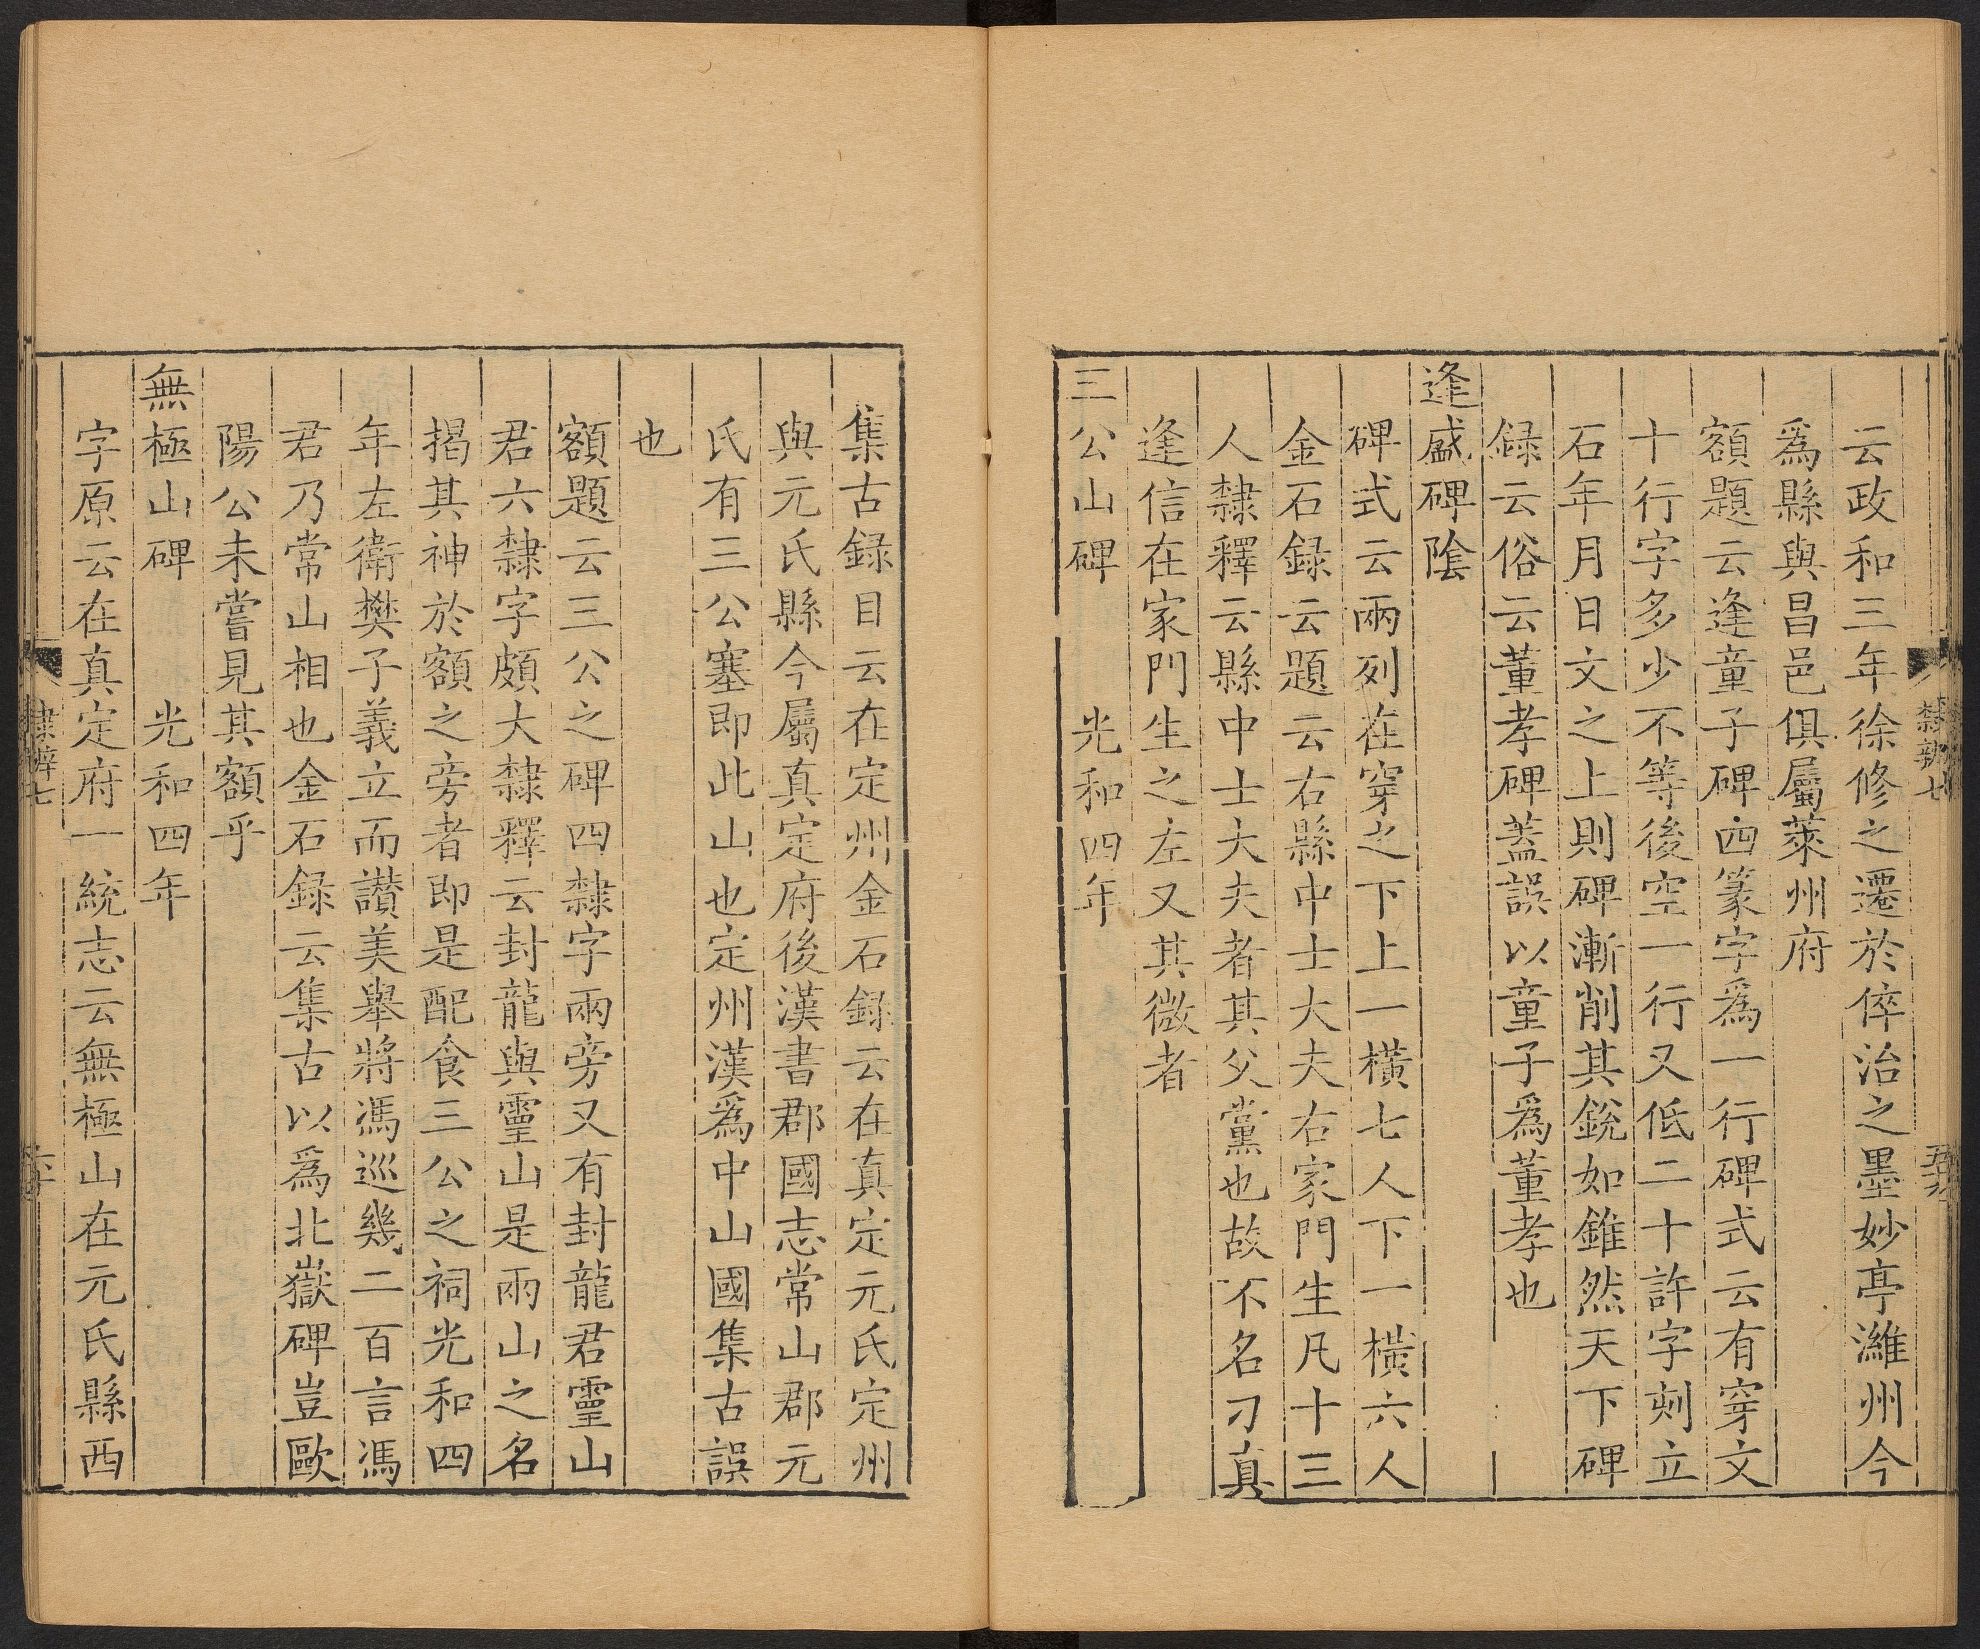 云政和三年徐修之遷於倅治之墨妙亭濰州今
爲縣與昌邑俱屬萊州府
額題云逢童子碑四篆字爲一行碑式云有穿文
十行字多少不等後空一行又低二十許字刺立
石年月日文之上則碑漸削其銳如錐然天下碑
録云俗云董孝碑蓋誤以童子爲董孝也
逢盛碑陰
碑式云兩列在穿之下上一橫七人下一橫六人
金石録云題云右縣中士大夫右家門生凡十三
人隸釋云縣中士大夫者其父黨也故不名刁真
逢信在家門生之左又其微者
三公山碑 光和四年
集古録目云在定州金石録云在真定元氏定州
與元氏縣今屬真定府後漢書郡國志常山郡元
氏有三公塞即此山也定州漢爲中山國集古誤
也
額題云三公之碑四隸字兩旁又有封龍君靈山
君六隸字頗大隸釋云封龍與靈山是兩山之名
揭其神於額之旁者即是配食三公之祠光和四
年左衛樊子義立而讃美舉將馮巡幾二百言馮
君乃常山相也金石録云集古以爲北嶽碑豈歐
陽公未嘗見其額乎
無極山碑 光和四年
字原云在真定府一統志云無極山在元氏縣西
隸辨七